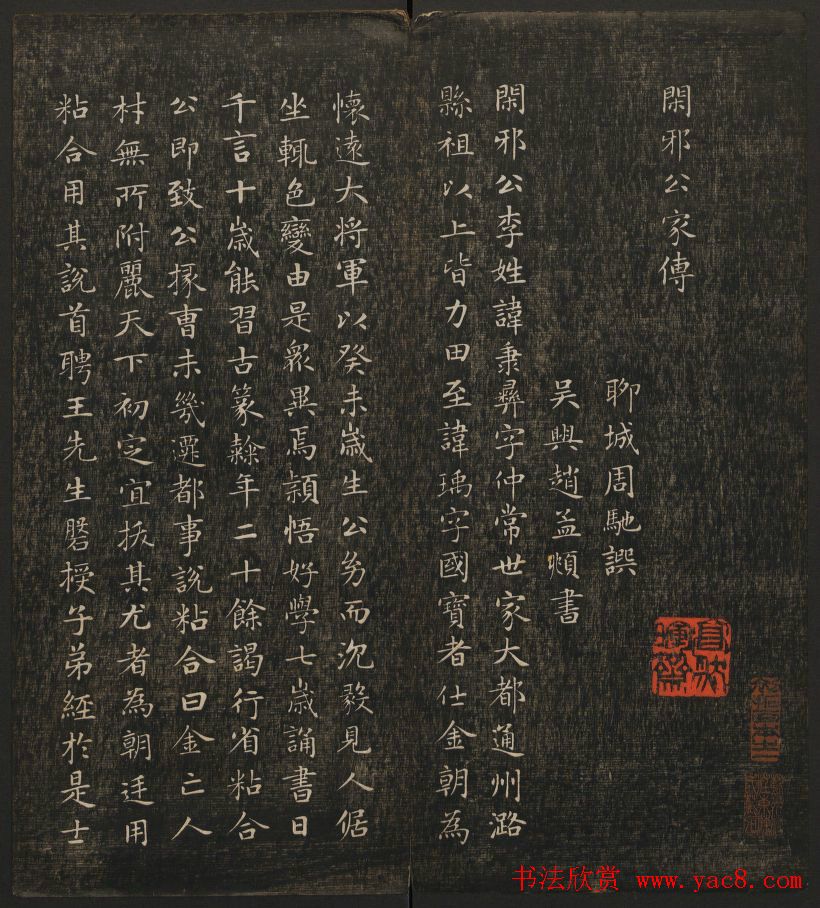 閑邪公家傳
聊城周馳譔
吴興趙孟頫書
閑邪公李姓諱秉彝字仲常世家大都通州潞
縣祖以上皆力田至諱瑀字國寶者仕金朝為
懷遠大將軍以癸未歲生公㓜而沉毅見人倨
坐輒色變由是眾異焉穎悟好學七歲誦書日
千言十歲能習古篆隷年二十餘謁行省粘合
公即致公掾曹未幾遷都事說粘合曰金亡人
材無所附麗天下初定宜拔其尤者為朝廷用
粘合用其說首聘王先生磐授子弟經於是士
书法欣赏 www.yac8.com